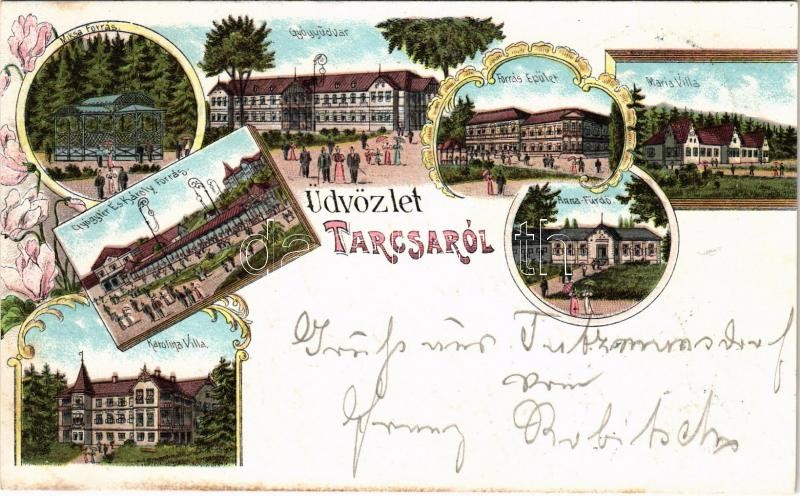 Miksa Forrás
Gyógyudvar
Forrás Epület
Maria Villa
Gyógytér És Karoly Forrás.
Anna-Fürdő
Üdvözlet
TARCSARÓL
Karolina Villa.
Gruß aus Tatzmannsdorf
vom
Franz Robitsch